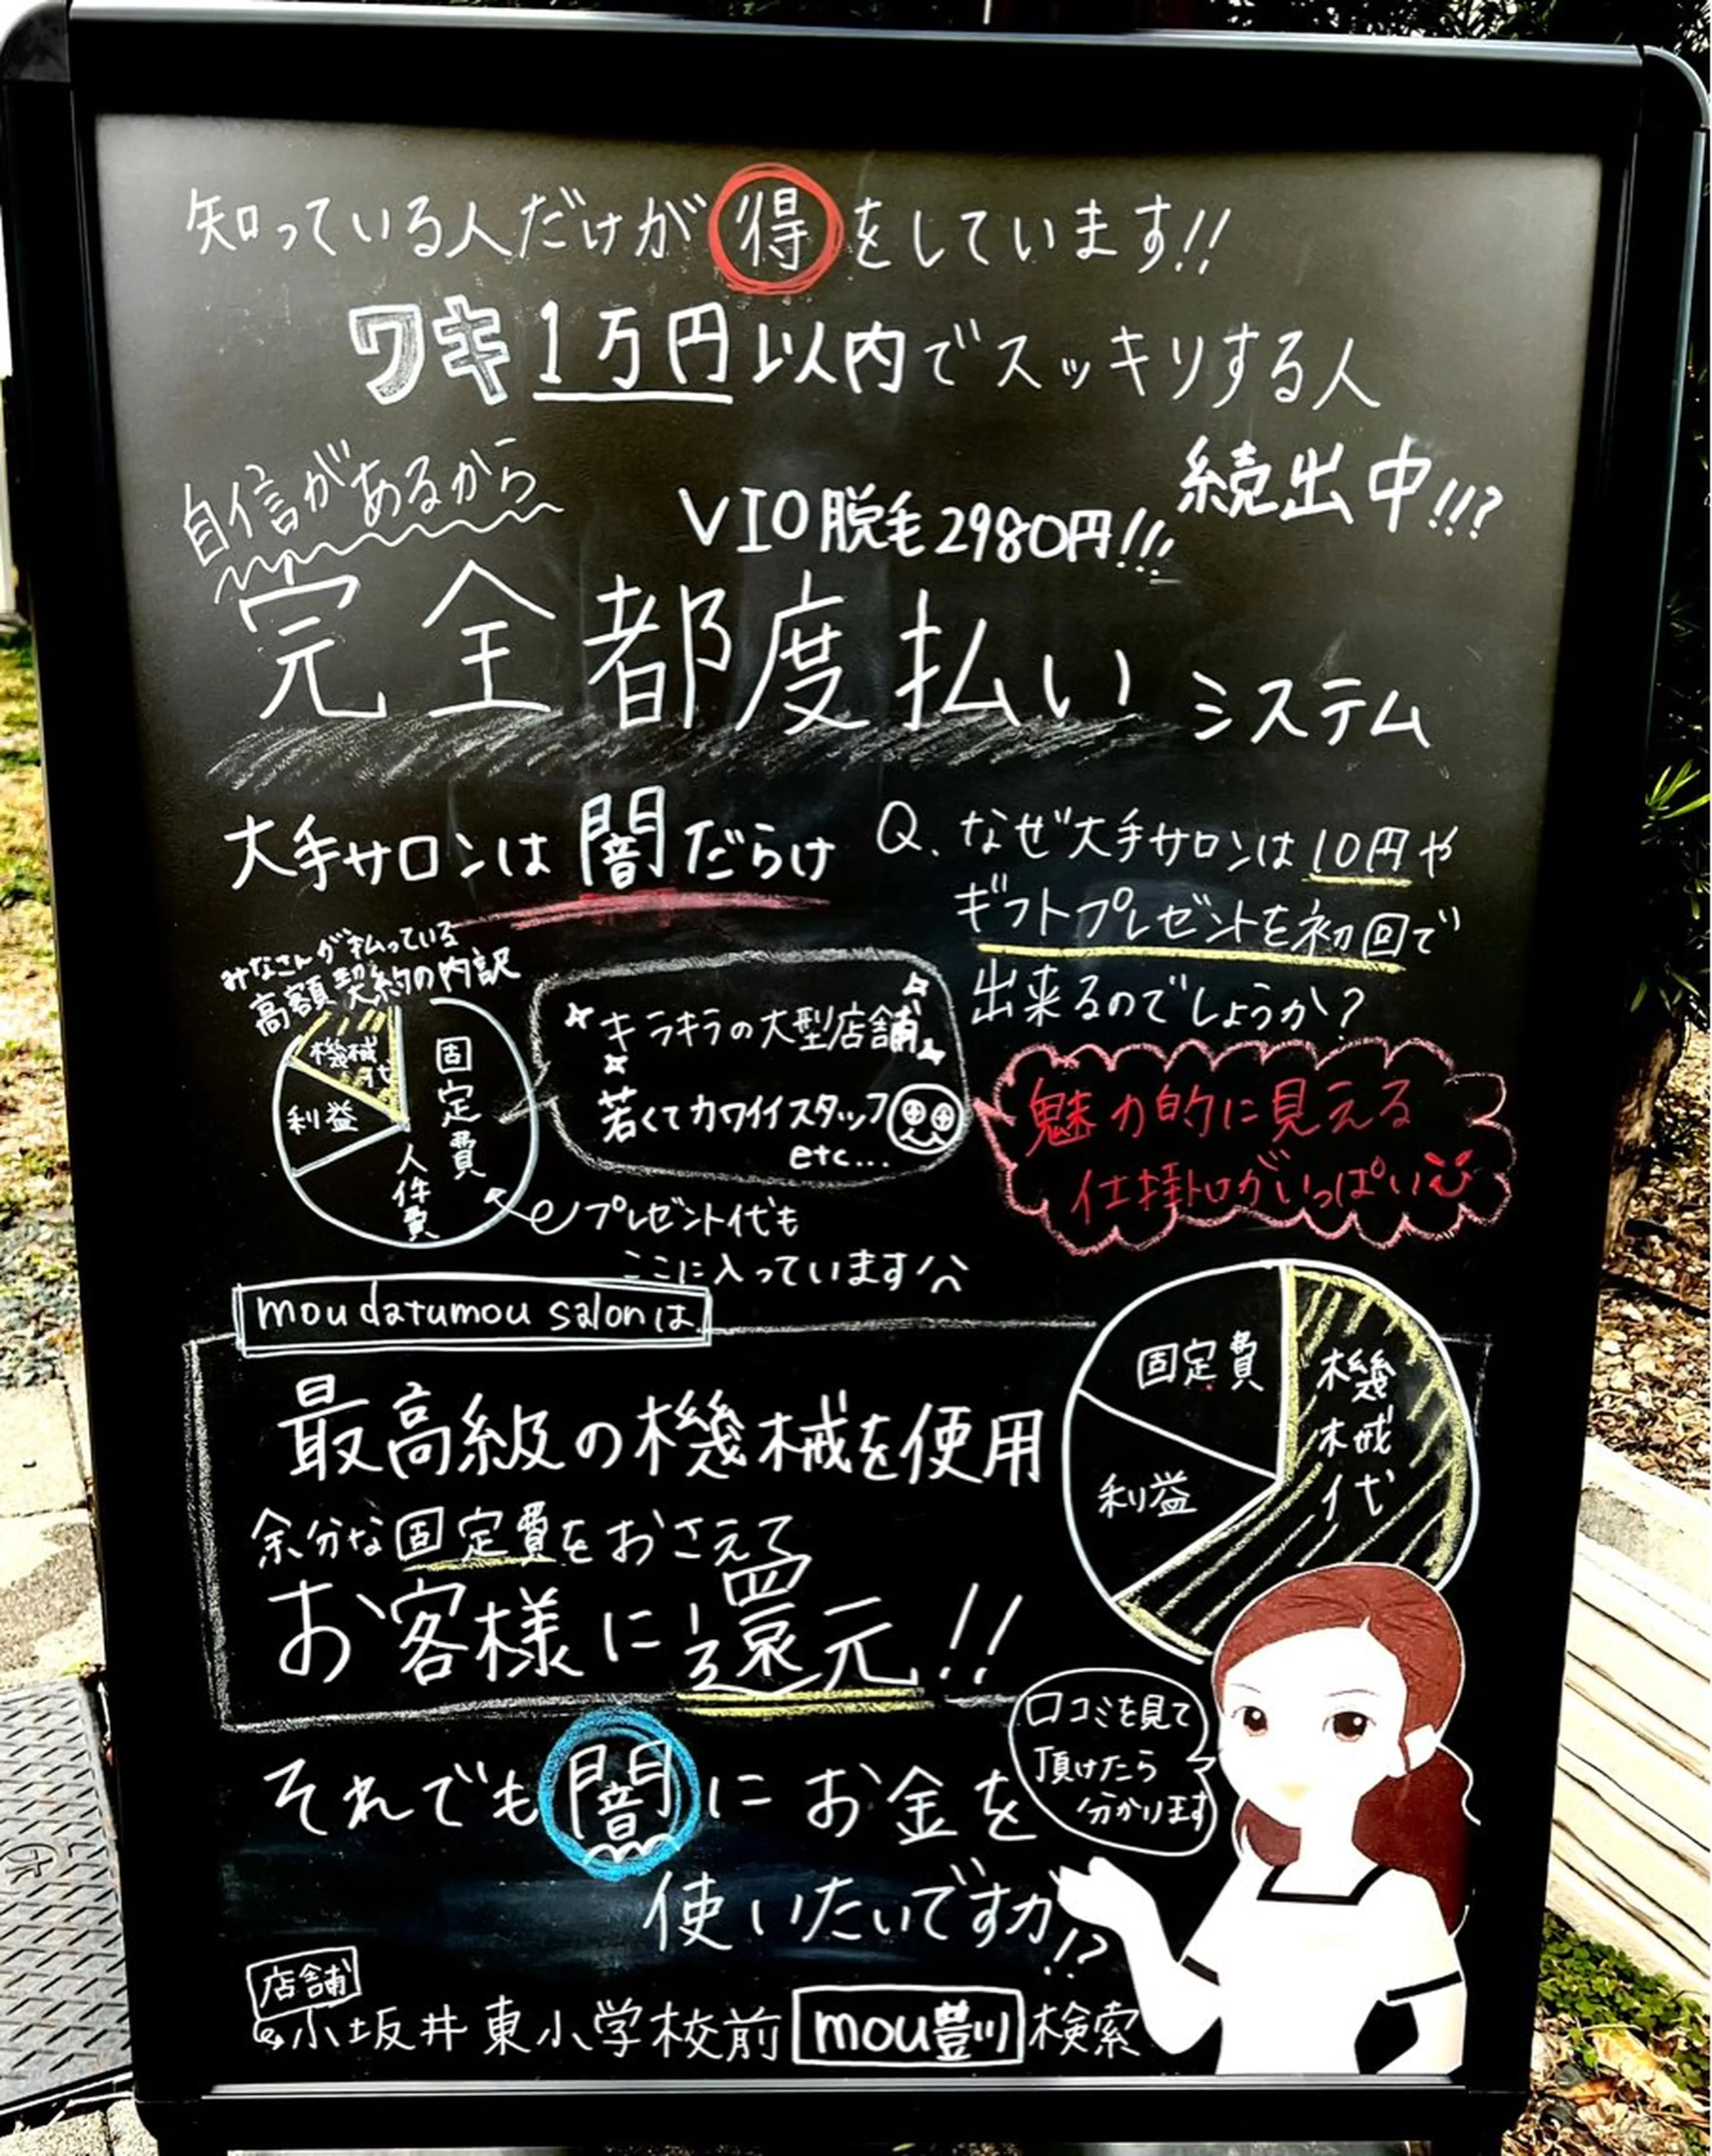 知っている人だけが得をしています!!
ワキ1万円以内でスッキリする人
続出中!!?
自信があるから
VIO脱毛2980円!!!
完全都度払いシステム
大手サロンは闇だらけ
Q.なぜ大手サロンは10円や
ギフトプレゼントを初回で
出来るのでしょうか?
みなさんが払っている
高額契約の内訳
機械代
利益
固定費
人件費
キラキラの大型店舗
若くてカワイイスタッフ
etc...
魅力的に見える
仕掛けがいっぱい
プレゼント代も
ここに入っています
mou datumou salonは
最高級の機械を使用
余分な固定費をおさえて
お客様に還元!!
固定費
機械代
利益
それでも闇にお金を
使いたいですか!?
口コミを見て
頂けたら
分かります
店舗
小坂井東小学校前 mou豊川 検索